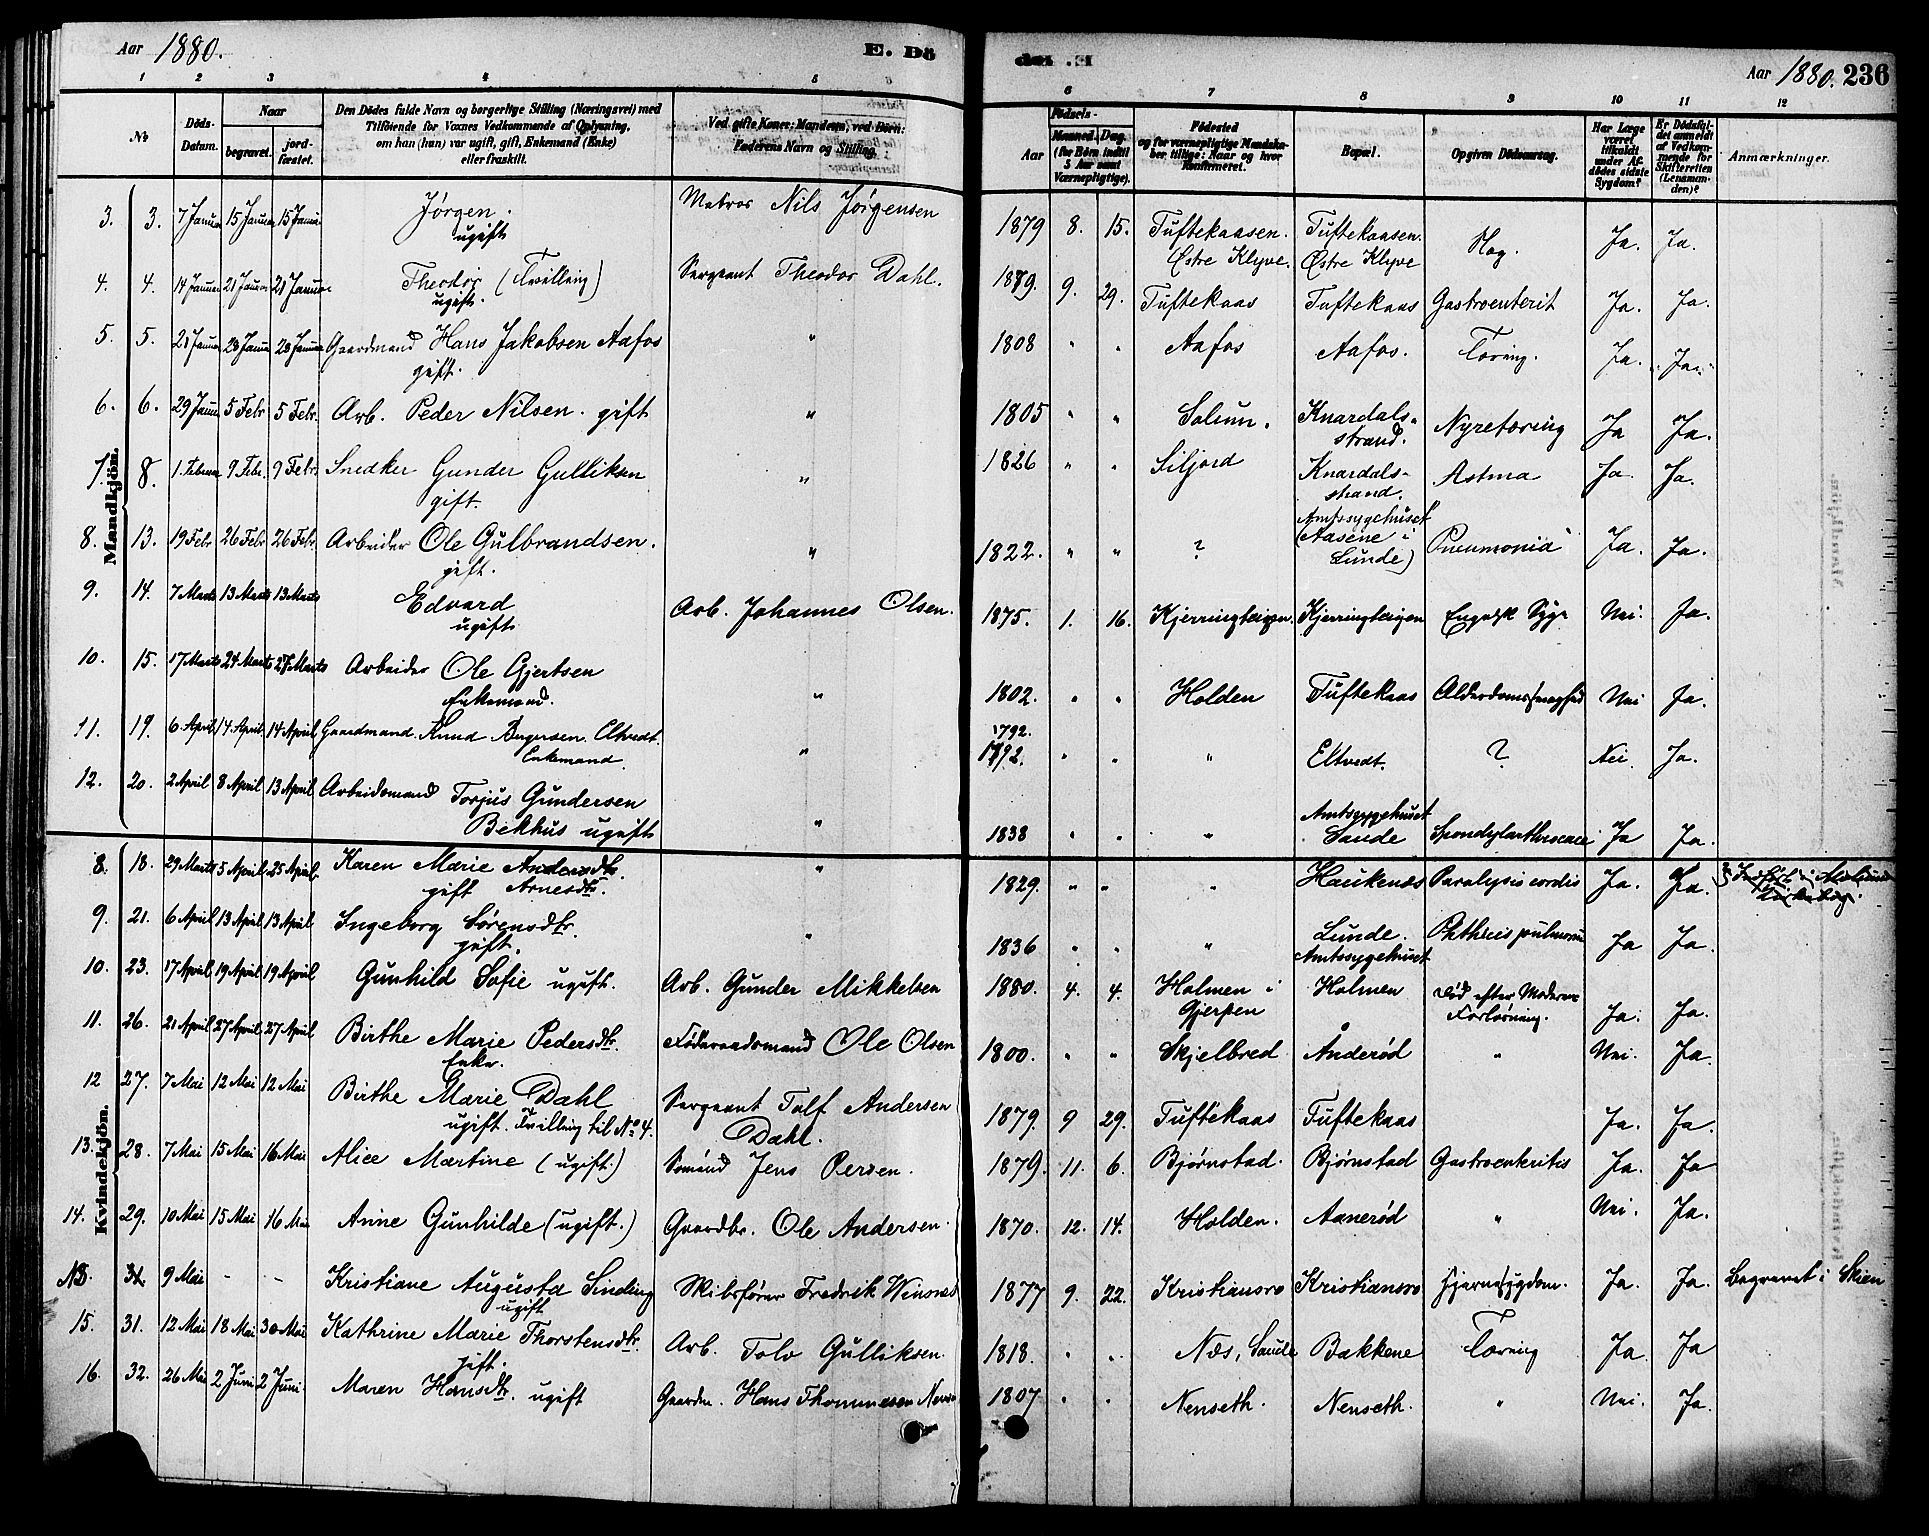 Aar 1880. E. Dö
den .H
Aar 1880. 236
1 2 3 4 5 6 7 8 9 10 11 12
No Döds-Datum. Naar begravet. jordfæstet.
Den Dödes fulde Navn og borgerlige Stilling (Næringsvei) med
Tilföiende for Voxnes Vedkommende af Oplysning,
om han (hun) var ugift, gift, Enkemand (Enke)
eller fraskilt.
Ved gifte Koner: Mandens, ved Börn:
Faderens Navn og Stilling.
Födsels-
Aar Maaned. Dag.
(for Börn indtil 5 Aar samt Værnepligtige).
Födested
og for værnepligtige Mandskaber tillige: Naar og hvor Konfirmeret.
Bopæl. Opgiven Dödsaarsag.
Har Læge været tilkaldt under Afdödes sidste Sygdom?
Er Dödsfaldet anmeldt af Vedkommende for Skifteretten (Lensmanden)?
Anmærkninger.
Mandkjön.
3. 3. 7 Januar 15 Januar 15 Januar Jørgen. Matros Nils Jørgensen 1879 8. 15. Tuftekaasen. Tuftekaasen. Ja. Ja.
ugift Østre Klyve. Østre Klyve
4. 4. 14 Januar 21 Januar 21 Januar Theodor (Tvilling) Sergeant Theodor Dahl. 1879. 9. 29. Tuftekaas Tuftekaas Gastroenterit Ja. Ja.
ugift.
5. 5. 23 Januar 28 Januar Gaardmand Hans Jakobsen Aafos " 1808 " " Aafos Aafos. Tæring. Ja. Ja.
gift.
6. 6. 29 Januar 5 Febr 5 Febr. Arb. Peder Nilsen. gift " 1805 " " Solum. Knardals- Nyretæring Ja Ja.
strand.
7. 8. 1. Februar 9 Febr. 9 Febr. Snedker Gunder Gulliksen " 1826 " " Siljord Knardals- Astma Ja. Ja.
gift. strand.
8. 13. 19 Febr 26 Febr 26 Febr. Arbeider Ole Gulbrandsen. " 1822. " " ? Amtssygehuset
gift. (Aasene i Lunde) Pneumonia Ja. Ja.
9. 14. 7 Marts 13 Marts 13 Marts Edvard Arb. Johannes Olsen. 1875. 1. 16. Kjerringteigen. Kjerringteigen Engelsk Syge Nei. Ja.
ugift
10. 15. 17 Marts 24 Marts 27 Marts Arbeider Ole Gjertsen " 1802. " " Holden Tuftekaas Alderdomssvaghed Nei Ja.
Enkemand.
11. 19. 6 April 14 April 14 April Gaardmand. Knud Eltvedt. " 1792. 1792. " " " Eltvedt. ? Nei. Ja.
Enkemand.
12. 20. 2 April 8 April 13 April Arbeidsmand Torjus Gundersen
Bekhus ugift " 1838 " " " Amtssygehuset
Saude Ja Ja.
Kvindekjön.
8. 18. 29 Marts 5 April 25 April. Karen Marie Andersdtr. " 1829. " " " Haukenæs Paralysis cordis Ja. Ja.
gift Arnesdtr.
9. 21. 6 April 13 April 13 April Ingeborg Sørensdtr. " 1836 " " " Lunde. Phthisis pulmonum Ja Ja.
gift. Amtssygehuset
10. 23. 17 April 19 April 19 April Gunhild Sofie ugift. Arb. Gunder Mikkelsen 1880. 4. 4. Holmen i Holmen Død efter Moderens Ja. Ja.
Gjerpen Forløsning.
11. 26. 21 April 27 April 27 April Birthe Marie Pedersdtr. Føderaadsmand Ole Olsen 1800. " " Skjelbred Ånderød " Nei. Ja.
Enke.
12 27. 7 Mai 12 Mai 12 Mai Birthe Marie Dahl Sergeant Tolf Andersen 1879. 9 29. Tuftekaas Tuftekaas Ja. Ja.
ugift. Tvilling til No 4. Dahl.
13. 28. 7 Mai 15 Mai 16 Mai Alice Martine (ugift.) Sømand Jens Persen. 1879. 11. 6. Bjørnstad. Bjørnstad Gastroenteritis Ja. Ja
14. 29. 10 Mai 15 Mai 16 Mai Anne Gunhilde (ugift.) Gaardbr. Ole Andersen. 1870. 12. 14. Holden. Aanerød " Nei. Ja.
NB. 9 Mai - - Kristiane Augusta Sinding Skibsfører Fredrik Winsnes 1877 9. 22. Kristiansro Kristiansro Hjernesygdom. Ja. Ja. Begravet i Skien
ugift
15. 31. 12 Mai 18 Mai 30 Mai Kathrine Marie Thorstensdtr. Arb. Tolv Gulliksen. 1818. " " Næs, Saude Bakkene Tæring Ja Ja
gift.
16. 32. 26 Mai 2 Juni 2 Juni. Maren Hansdtr. ugift Hans Thommesen 1807 " " Nenseth. Nenseth. " Nei. Ja.